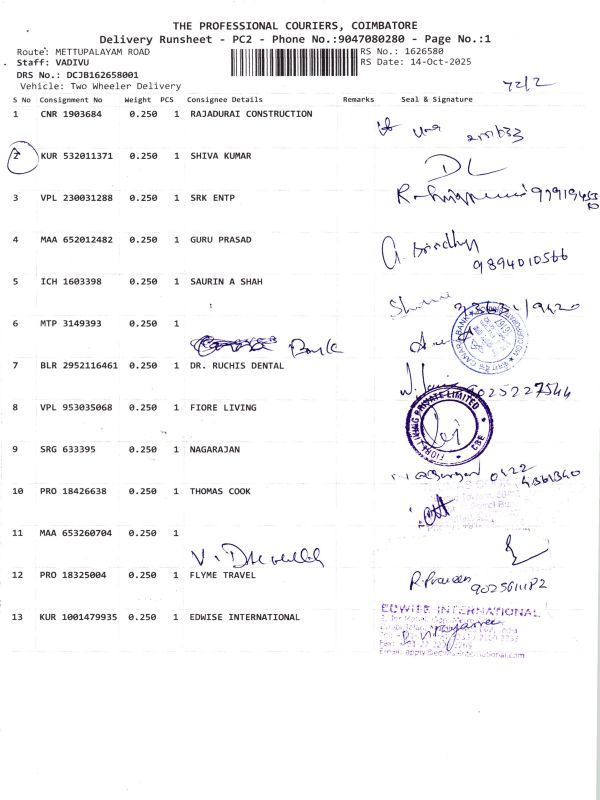 THE PROFESSIONAL COURIERS, COIMBATORE
Delivery Runsheet - PC2 - Phone No.:9047080280 - Page No.:1
Route: METTUPALAYAM ROAD
RS No.: 1626580
Staff: VADIVU
RS Date: 14-Oct-2025
DRS No.: DCJB162658001
Vehicle: Two Wheeler Delivery
72/2
S No Consignment No Weight PCS Consignee Details Remarks Seal & Signature
1 CNR 1903684 0.250 1 RAJADURAI CONSTRUCTION
2 KUR 532011371 0.250 1 SHIVA KUMAR
DL
3 VPL 230031288 0.250 1 SRK ENTP
4 MAA 652012482 0.250 1 GURU PRASAD
9894010566
5 ICH 1603398 0.250 1 SAURIN A SHAH
6 MTP 3149393 0.250 1
Bank
CANARA BANK
7 BLR 2952116461 0.250 1 DR. RUCHIS DENTAL
9025227544
8 VPL 953035068 0.250 1 FIORE LIVING
FIORE LIVING PRIVATE LIMITED CBE
9 SRG 633395 0.250 1 NAGARAJAN
0422
4361340
10 PRO 18426638 0.250 1 THOMAS COOK
11 MAA 653260704 0.250 1
12 PRO 18325004 0.250 1 FLYME TRAVEL
R. Praveen
9025611182
13 KUR 1001479935 0.250 1 EDWISE INTERNATIONAL
EDWISE INTERNATIONAL